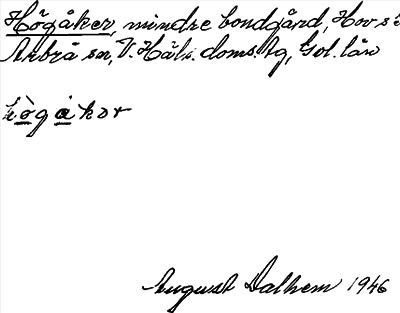 Högåker, mindre bondgård, Hovs:
Arbrå sn, V. Häls. doms. tg, Gvl. län
hògåkər
August Dalhem 1946